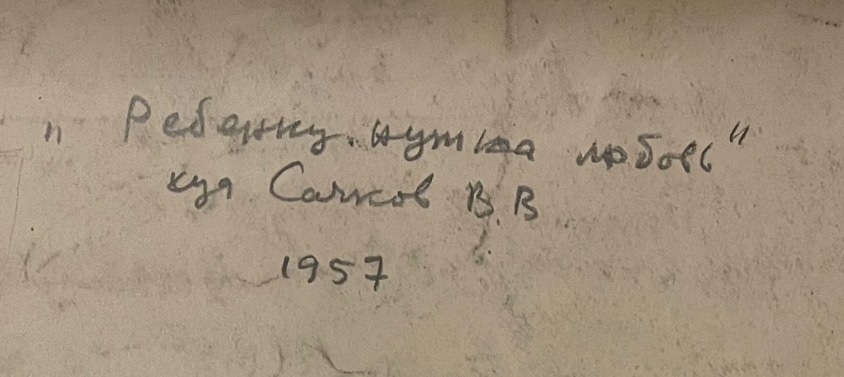 "Ребенку нужна любовь"
худ Сачков В.В
1957